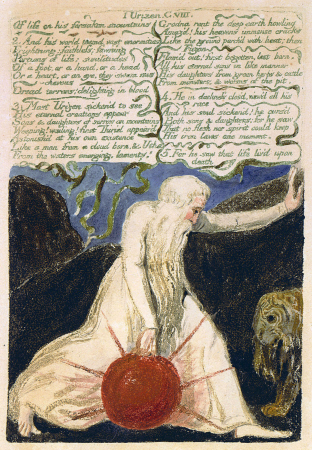 Urizen. C: VIII.
Of life on his forsaken mountains
2. And his world teemd vast enormities
Frightning; faithless; fawning
Portions of life; similitudes
Of a foot, or a hand, or a head
Or a heart, or an eye, they swam mis-
-chevous
Dread terrors! delighting in blood
3. Most Urizen sickend to see
His eternal creations appear
Sons & daughters of sorrow on mountains
Weeping! wailing! first Thiriel appeard
Astonish'd at his own existence
Like a man from a cloud born, & Utha
From the waters emerging, laments!
Grodna rent the deep earth howling
Amaz'd! his heavens immense cracks
Like the ground parch'd with heat; then
Fuzon
Flam'd out! first begotten, last born.
All his eternal sons in like manner
His daughters from green herbs & cattle
From monsters, & worms of the pit.
4. He in darkness clos'd, view'd all his
race
And his soul sicken'd! he curs'd
Both sons & daughters; for he saw
That no flesh nor spirit could keep
His iron laws one moment.
5. For he saw that life liv'd upon
death